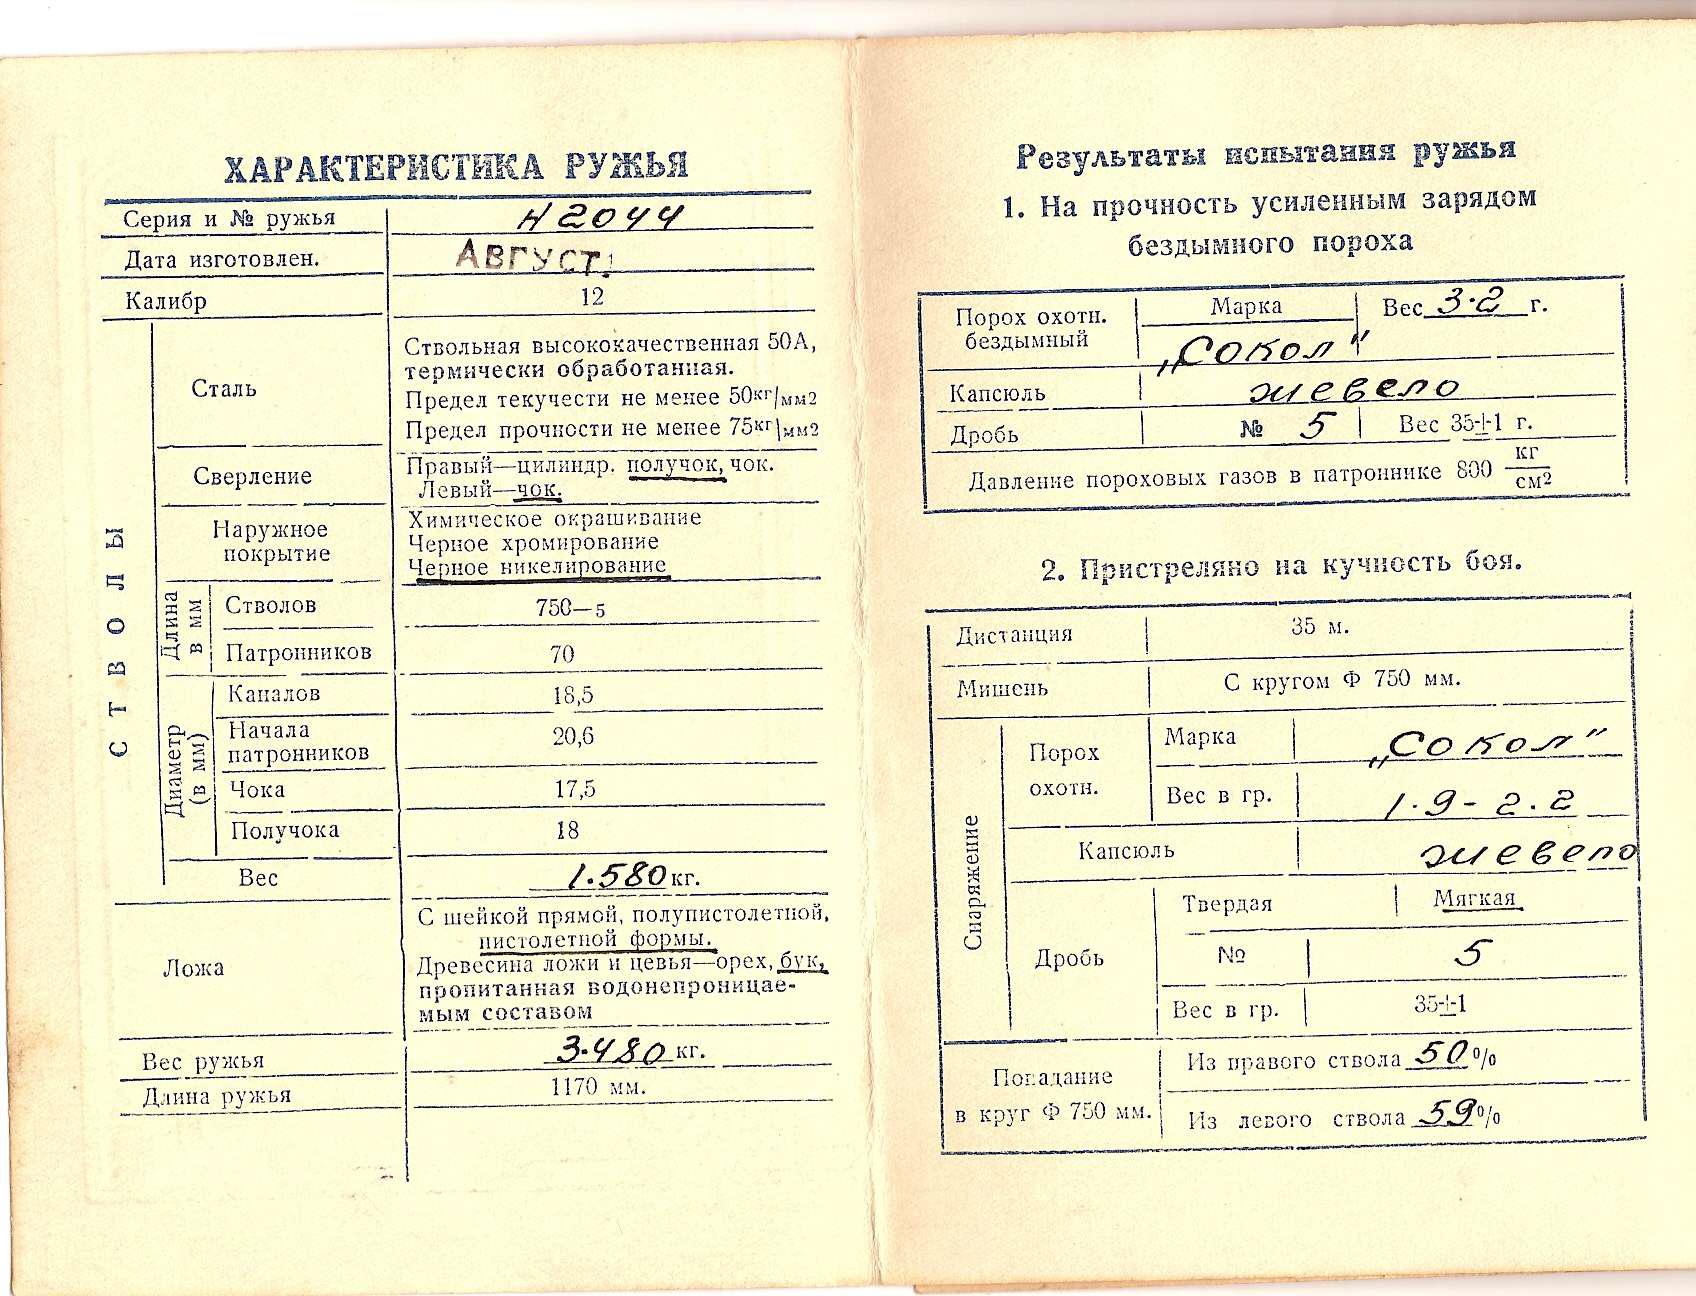 ХАРАКТЕРИСТИКА РУЖЬЯ
Серия и № ружья Н 2044
Дата изготовлен. АВГУСТ.
Калибр 12
СТВОЛЫ
Сталь
Ствольная высококачественная 50А,
термически обработанная.
Предел текучести не менее 50кг/мм2
Предел прочности не менее 75кг/мм2
Сверление
Правый—цилиндр. получок, чок.
Левый—чок.
Наружное
покрытие
Химическое окрашивание
Черное хромирование
Черное никелирование
Длина
в мм
Стволов 750—5
Патронников 70
Диаметр
(в мм)
Каналов 18,5
Начала
патронников 20,6
Чока 17,5
Получока 18
Вес 1.580 кг.
Ложа
С шейкой прямой, полупистолетной,
пистолетной формы.
Древесина ложи и цевья—орех, бук,
пропитанная водонепроницае-
мым составом
Вес ружья 3.480 кг.
Длина ружья 1170 мм.
Результаты испытания ружья
1. На прочность усиленным зарядом
бездымного пороха
Порох охотн.
бездымный
Марка
„Сокол"
Вес 3.2 г.
Капсюль жевело
Дробь № 5 Вес 35±1 г.
Давление пороховых газов в патроннике 800 кг
см2
2. Пристреляно на кучность боя.
Дистанция 35 м.
Мишень С кругом Ф 750 мм.
Снаряжение
Порох
охотн.
Марка „Сокол"
Вес в гр. 1.9-2.2
Капсюль жевело
Дробь
Твердая Мягкая
№ 5
Вес в гр. 35±1
Попадание
в круг Ф 750 мм.
Из правого ствола 50 %
Из левого ствола 59 %